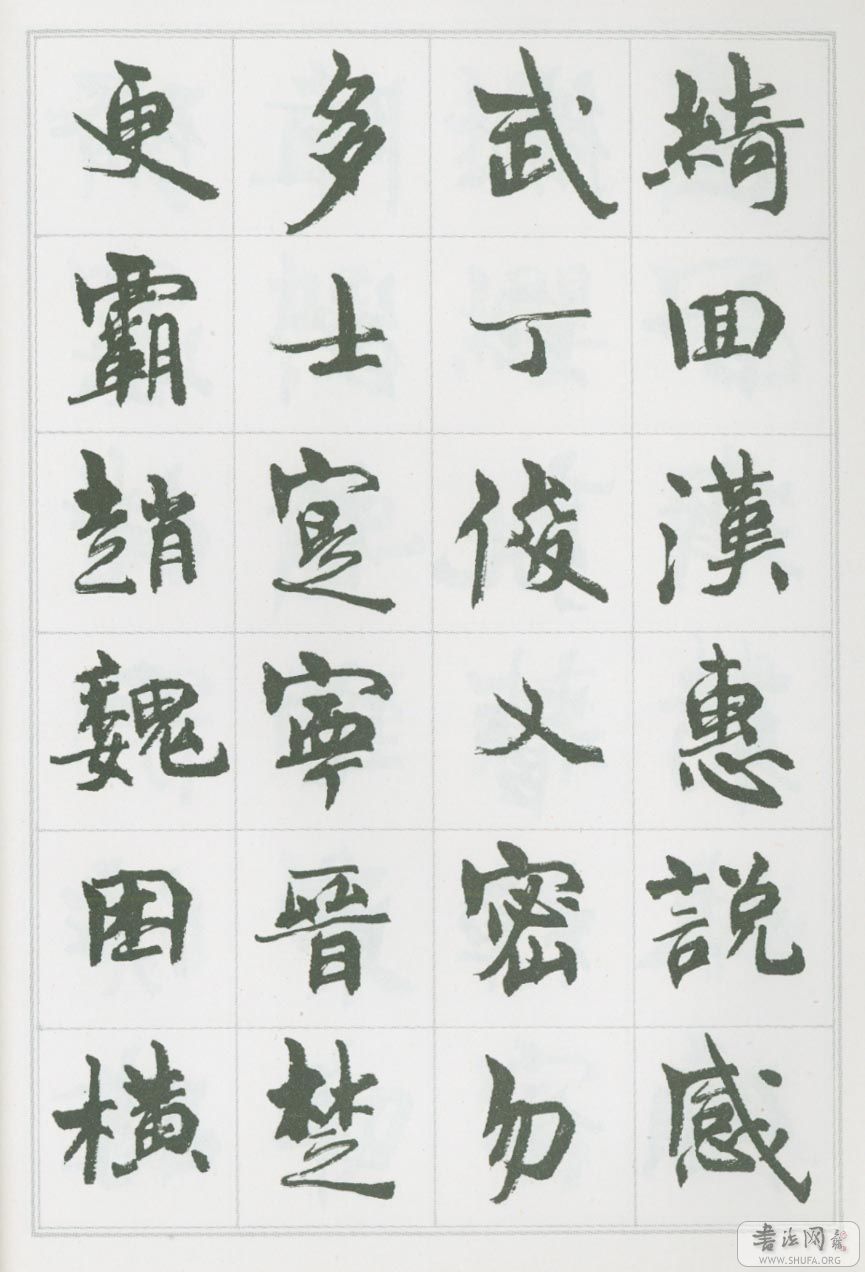 綺回漢惠說感
武丁俊乂密勿
多士寔寧晉楚
更霸趙魏困橫
書法网
WWW.SHUFA.ORG